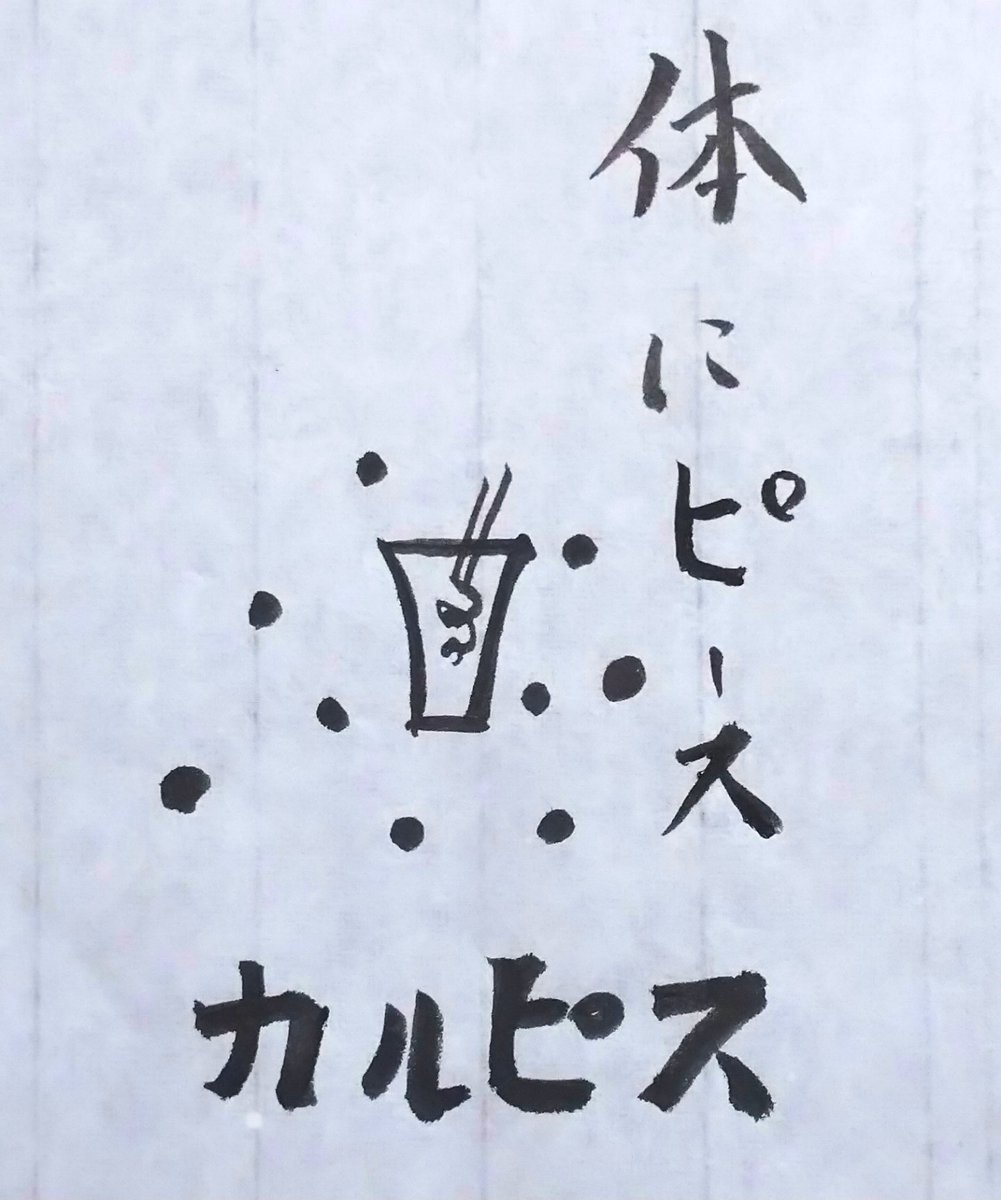 体にピース
カルピス